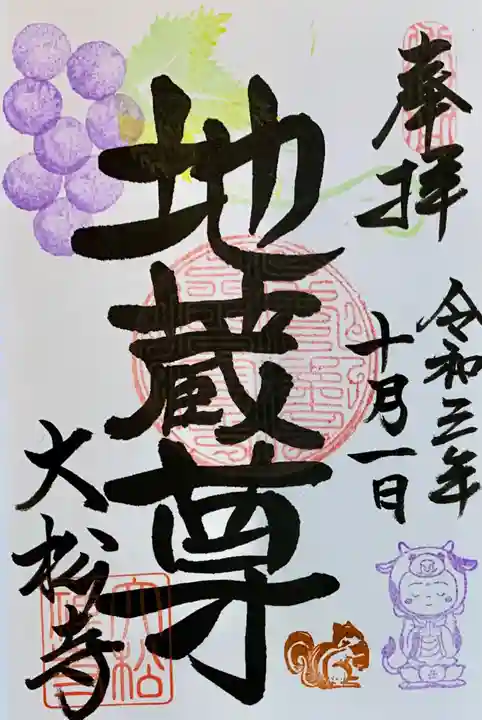 奉拝
令和三年
十月一日
地蔵尊
大松寺